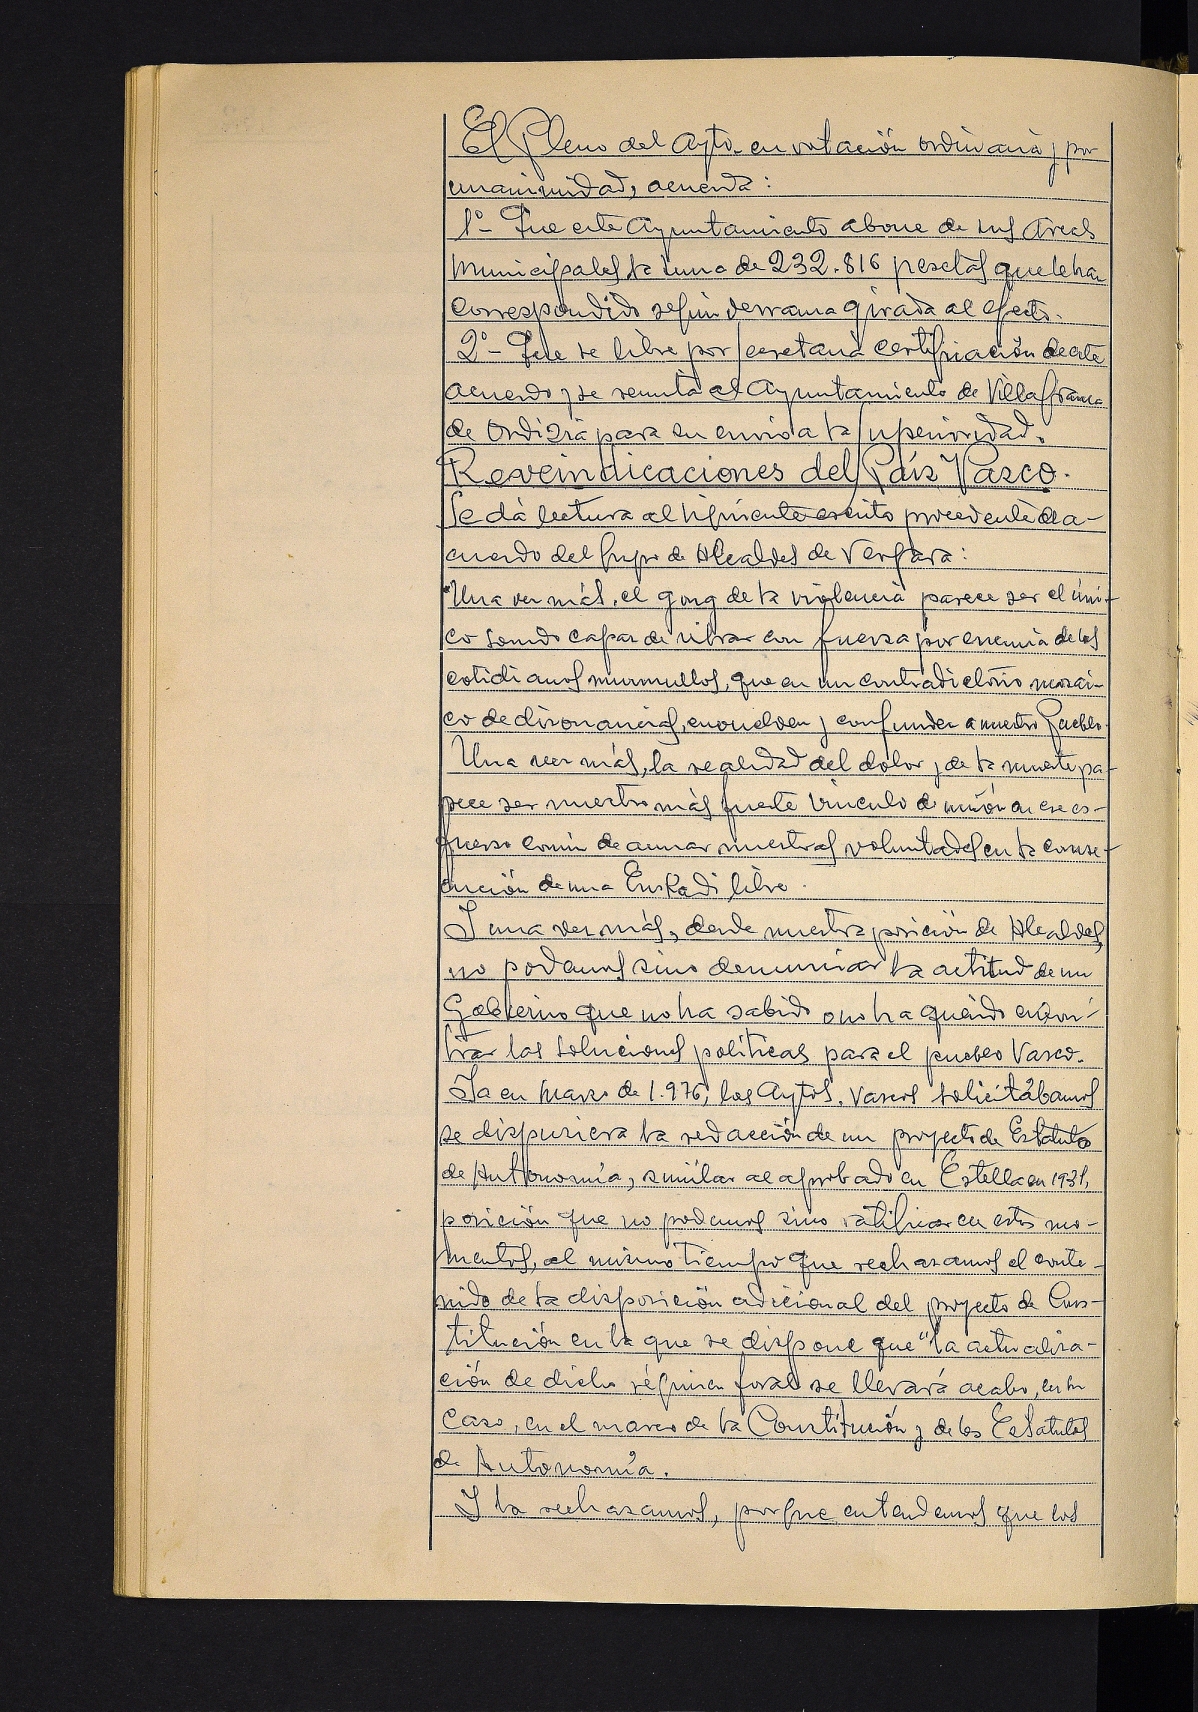 El Pleno del Ayto. en votación ordinaria y por
unanimidad, acuerda:
1º- Que este Ayuntamiento abone de sus Arcas
Municipales la suma de 232.816 pesetas que le ha
correspondido según derrama girada al efecto.
2º- Que se libre por Secretaría certificación de este
acuerdo y se remita al Ayuntamiento de Villafranca
de Ordizia para su envío a la Superioridad.
Reveindicaciones del País Vasco.
Se dá lectura al siguiente escrito procedente de a-
cuerdo del Grupo de Alcaldes de Vergara:
"Una vez más, el gong de la violencia parece ser el úni-
co sonido capaz de vibrar con fuerza por encima de los
cotidianos murmullos, que en un contradictorio mosai-
co de disonancias, envuelven y confunden a nuestro Pueblo.
Una vez más, la realidad del dolor y de la muerte pa-
rece ser nuestro más fuerte vínculo de unión en ese es-
fuerzo común de aunar nuestras voluntades en la conse-
cución de una Euskadi libre.
Y una vez más, desde nuestra posición de Alcaldes,
no podemos sino denunciar la actitud de un
Gobierno que no ha sabido o no ha querido encon-
trar las soluciones políticas para el pueblo Vasco.
Ya en Marzo de 1.976, los Aytos. Vascos solicitábamos
se dispusiera la redacción de un proyecto de Estatuto
de Autonomía, similar al aprobado en Estella en 1931,
posición que no podemos sino ratificar en estos mo-
mentos, al mismo tiempo que rechazamos el conte-
nido de la disposición adicional del proyecto de Cons-
titución en la que se dispone que "la actualiza-
ción de dicho régimen foral se llevará acabo, en su
caso, en el marco de la Constitución y de los Estatutos
de Autonomía.
Y la rechazamos, porque entendemos que los